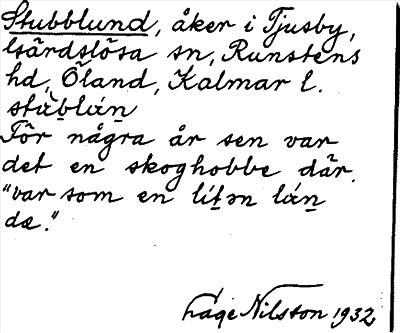 Stubblund, åker i Tjusby,
Gärdslösa sn, Runstens
hd, Öland, Kalmar l.
stàb̲lán̲
För några år sen var
det en skoghobbe där.
"var som en lít̲ən lán̲
dæ."
Låge Nilsson 1932